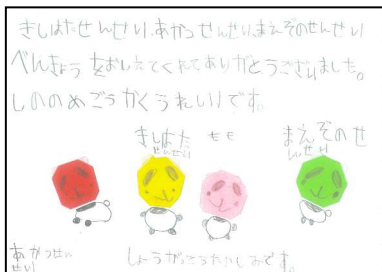 きしはたせんせい、あかつせんせい、まえぞのせんせい
べんきょうをおしえてくれてありがとうございました。
しののめごうかくうれしいです。
きしはた
せんせい
もも
まえぞのせ
んせい
あかつせん
せい
しょうがっこうたのしみです。